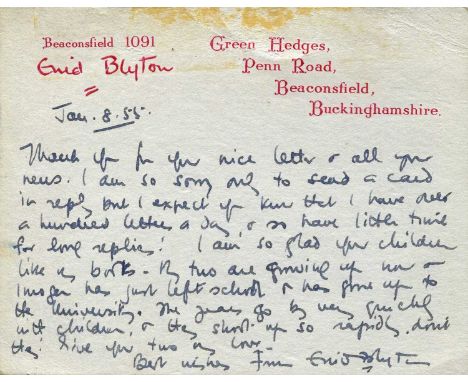 Beaconsfield 1091
Green Hedges,
Enid Blyton
Penn Road,
Beaconsfield,
Buckinghamshire.
Jan. 8. 55.
Thank you for your nice letter & all your
news. I am so sorry only to send a card
in reply but I expect you know that I have over
a hundred letters a day, & so have little time
for long replies! I am so glad your children
like my books - My two are growing up now &
Imogen has just left school & has gone up to
the University. The years go by very quickly
with children, & they shoot up so rapidly, don't
they! Give your two my love -
Best wishes From Enid Blyton